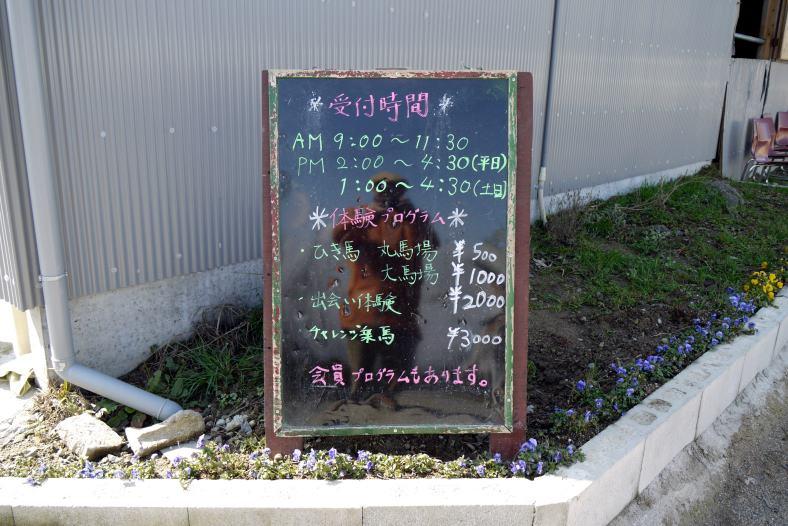 ＊受付時間＊
AM 9:00～11:30
PM 2:00～4:30(平日)
1:00～4:30(土日)
＊体験プログラム＊
・ひき馬 丸馬場 ¥500
大馬場 ¥1000
・出会い体験 ¥2000
チャレンジ乗馬 ¥3000
会員プログラムもあります。